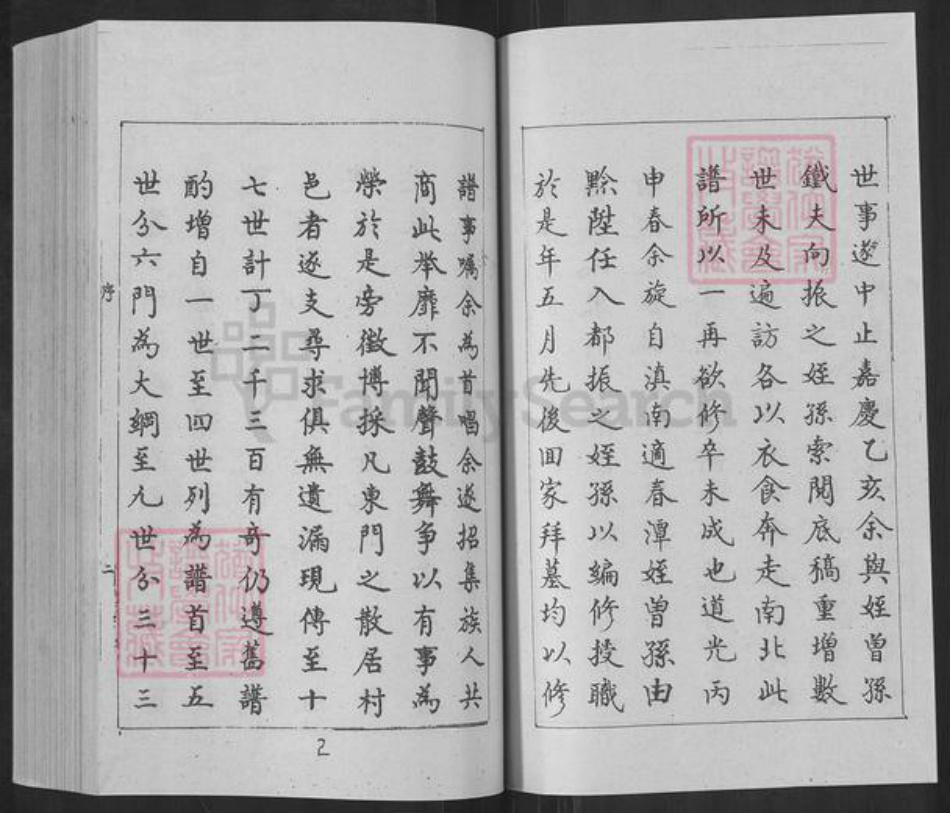 世事遂中止嘉慶乙亥余與姪曾孫
鐵夫向振之姪孫索閱底稿重增數
世未及遍訪各以衣食奔走南北此
譜所以一再欲修卒未成也道光丙
申春余旋自滇南適春潭姪曾孫由
黔陞任入都振之姪孫以編修授職
於是年五月先後回家拜墓均以修
譜事囑余為首唱余遂招集族人共
商此舉靡不聞聲鼓舞爭以有事為
榮於是旁徵博採凡東門之散居村
邑者逐支尋求俱無遺漏現傳至十
七世計丁二千三百有奇仍遵舊譜
酌增自一世至四世列為譜首至五
世分六門為大綱至九世分三十三
序
二
2
FamilySearch